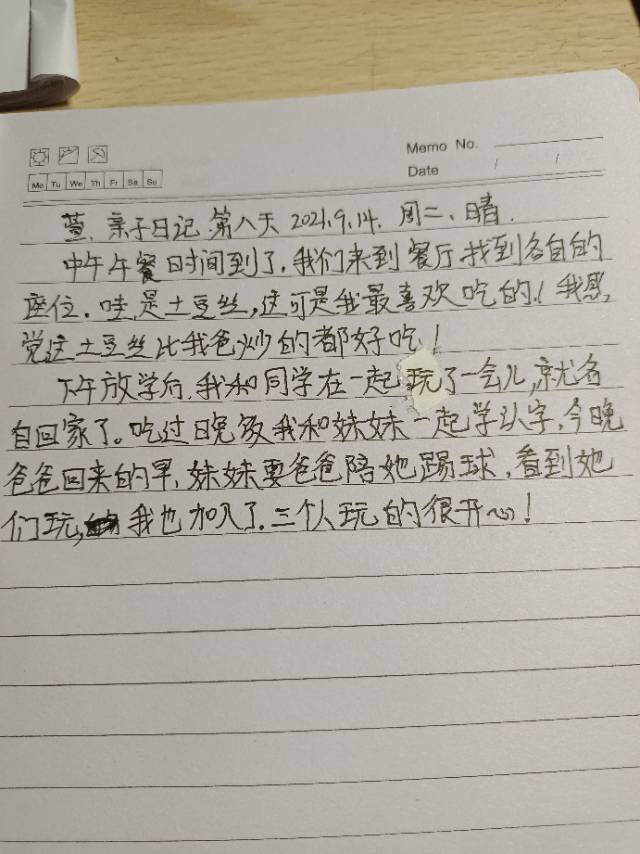 Memo No.
Date / /
Mo Tu We Th Fr Sa Su
萱. 亲子日记 第八天 2021.9.14. 周二、晴.
中午午餐时间到了,我们来到餐厅找到各自的
座位.哇,是土豆丝,这可是我最喜欢吃的!我感
觉这土豆丝比我爸炒的都好吃!
下午放学后,我和同学在一起玩了一会儿,就各
自回家了。吃过晚饭我和妹妹一起学认字,今晚
爸爸回来的早,妹妹要爸爸陪她踢球,看到她
们玩,我也加入了.三个人玩的很开心!